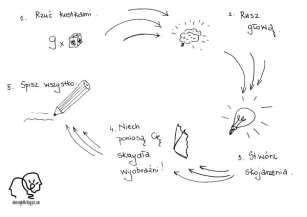 1. Rzuć kostkami.
9 x
2. Rusz
głową
3. Stwórz
skojarzenia.
4. Niech
poniosą Cię
skrzydła
wyobraźni!
5. Spisz wszystko.